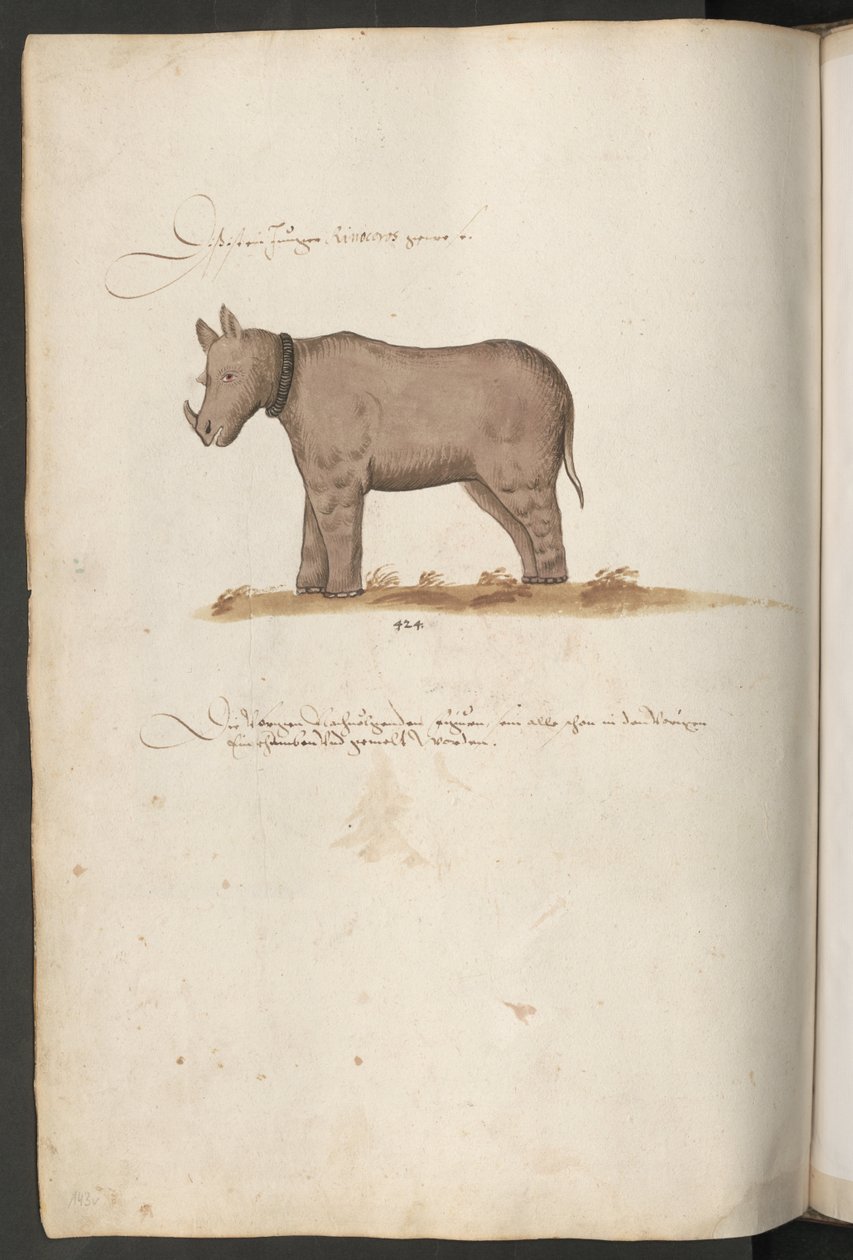 Diß ist ein Junger Rinoceros gewese.
424.
Die Vorigen Nachuolgenden figuren, sein alle schon in den Vorigen
Einschreiben Vnd gemelt worden.
143v